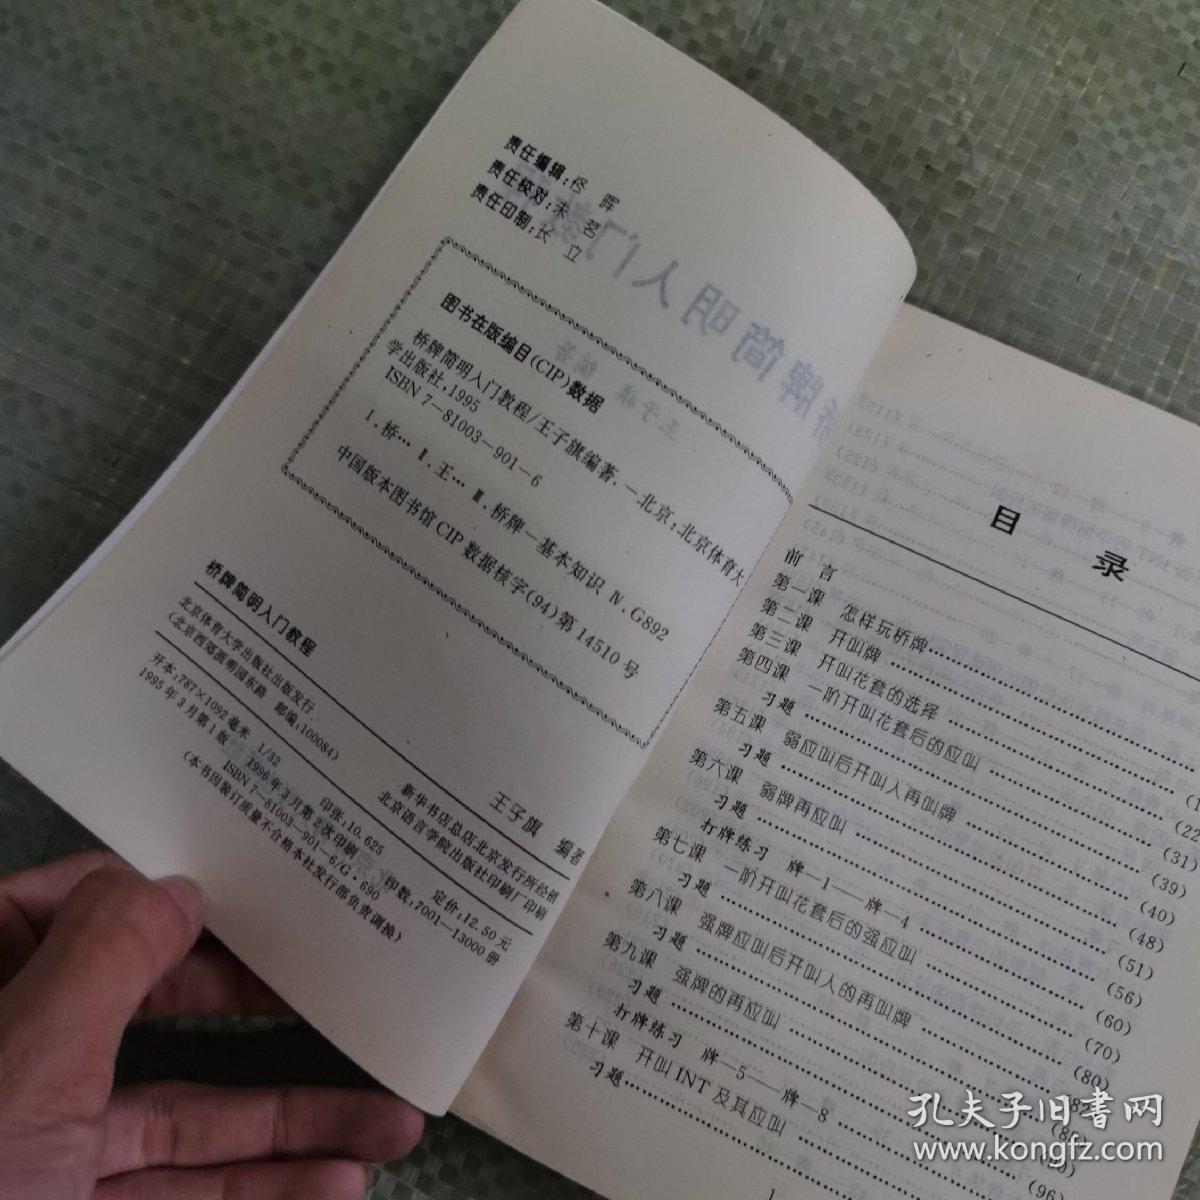 责任编辑:佟 晖
责任校对:未 茗
责任印制:长 立
图书在版编目(CIP)数据
桥牌简明入门教程/王子旗编著.—北京:北京体育大
学出版社,1995
ISBN 7—81003—901—6
Ⅰ.桥… Ⅱ.王… Ⅲ.桥牌—基本知识 Ⅳ.G892
中国版本图书馆CIP数据核字(94)第14510号
桥牌简明入门教程
王子旗 编著
北京体育大学出版社出版发行
(北京西郊圆明园东路 邮编:100084)
新华书店总店北京发行所经销
北京语言学院出版社印刷厂印刷
开本:787×1092毫米 1/32 印张:10.625 定价:12.50元
1995年3月第1版 1996年3月第2次印刷 印数:7001—13000册
ISBN 7—81003—901—6/G·690
(本书因装订质量不合格本社发行部负责调换)
目 录
前 言
第一课 怎样玩桥牌
第二课 开叫牌
第三课 开叫花套的选择
第四课 一阶开叫花套后的应叫
习题
第五课 弱应叫后开叫人再叫牌 (22
习题 (31)
第六课 弱牌再应叫 (39)
习题 (40)
打牌练习 牌—1——牌—4 (48)
第七课 一阶开叫花套后的强应叫 (51)
习题 (56)
第八课 强牌应叫后开叫人的再叫牌 (60)
习题 (70)
第九课 强牌的再应叫 (80)
习题
打牌练习 牌—5——牌—8
第十课 开叫1NT及其应叫
习题 (96)
1
孔夫子旧书网
www.kongfz.com